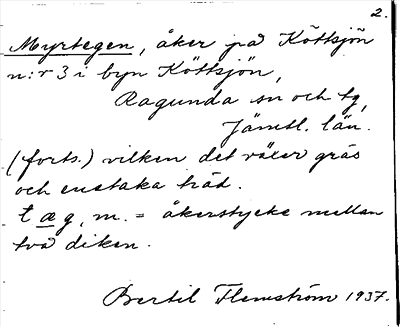 2.
Myrtegen, åker på Köttsjön
n:r 3 i byn Köttsjön,
Ragunda sn och tg,
Jämtl. län.
(forts.) vilken det växer gräs
och enstaka träd.
tæg, m. = åkerstycke mellan
två diken.
Bertil Flemström 1937.